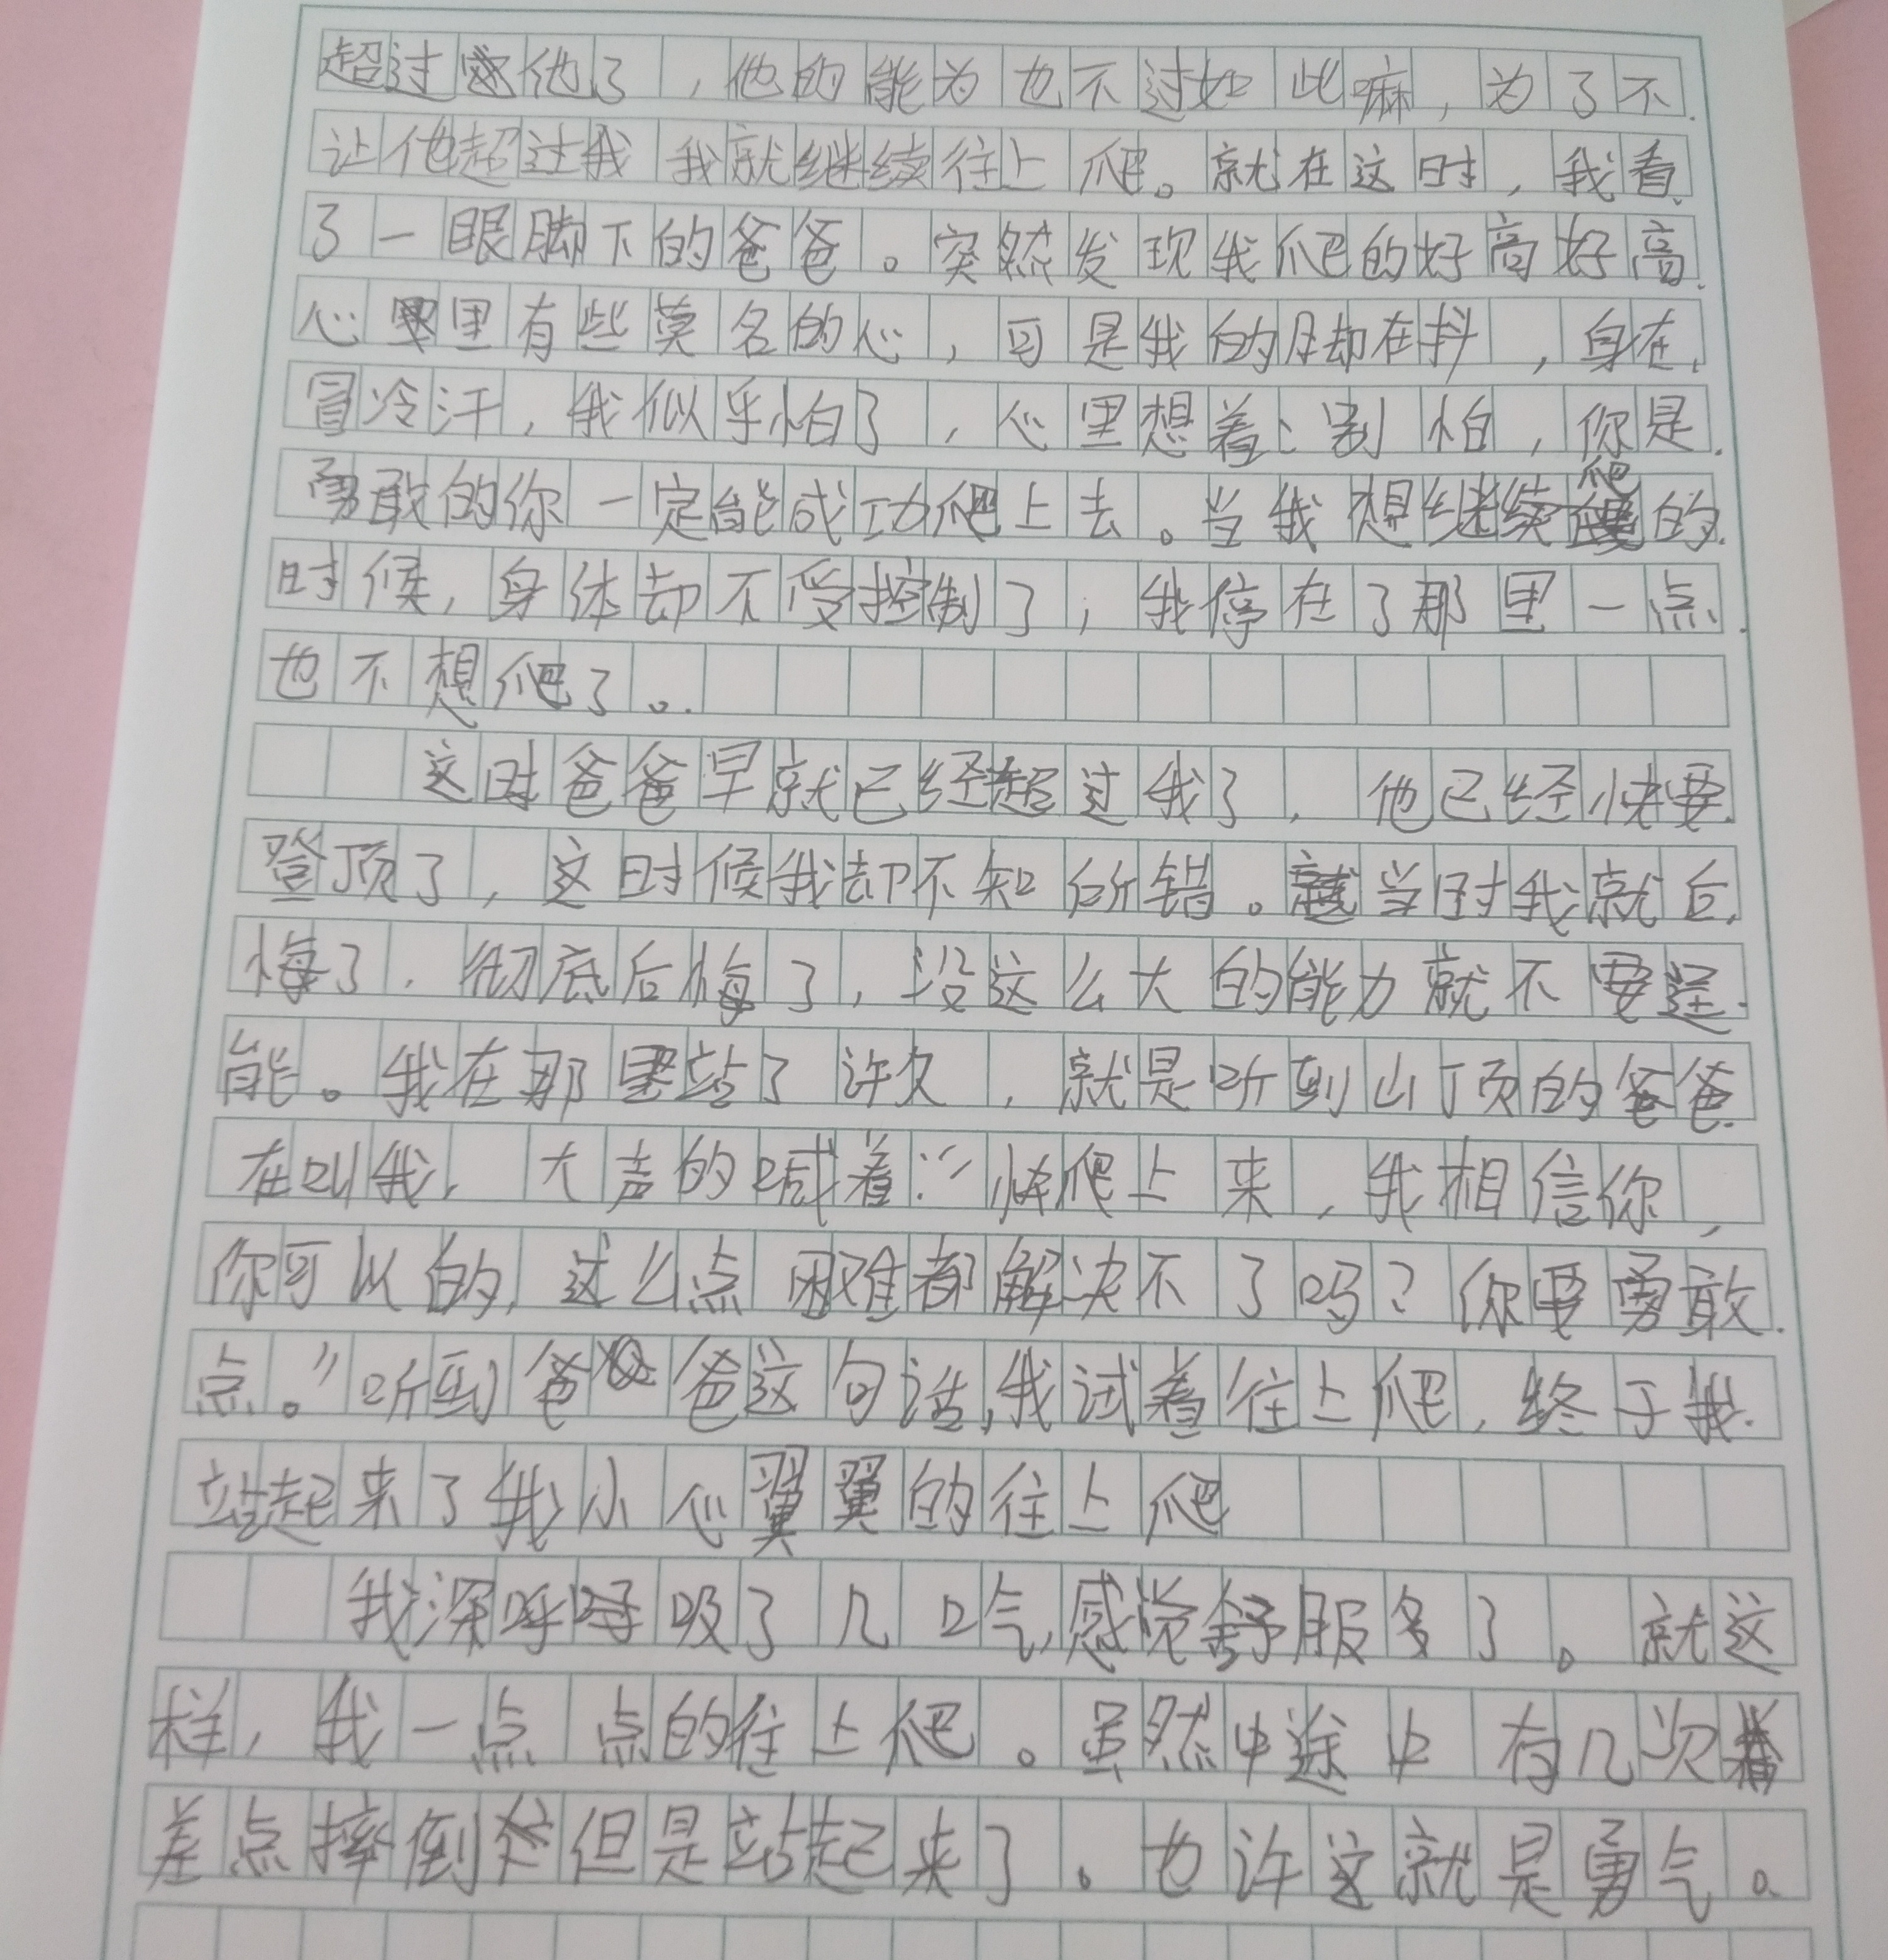 超过他了，他的能为也不过如此嘛，为了不
让他超过我 我就继续往上爬。就在这时，我看
了一眼脚下的爸爸。突然发现我爬的好高好高
心里有些莫名的心，可是我的月却在抖，身在
冒冷汗，我似乎怕了，心里想着：别怕，你是
勇敢的你一定能成功爬上去。当我想继续爬的
时候，身体却不受控制了，我停在了那里一点
也不想爬了。
这时爸爸早就已经超过我了，他已经快要
登顶了，这时候我却不知所错。当时我就后
悔了，彻底后悔了，没这么大的能力就不要逞
能。我在那里站了许久，就是听到山顶的爸爸
在叫我，大声的喊着：“快爬上来，我相信你，
你可以的，这么点困难都解决不了吗？你要勇敢
点。”听到爸爸这句话，我试着往上爬，终于我
站起来了我小心翼翼的往上爬
我深呼呼吸了几口气，感觉舒服多了。就这
样，我一点点的往上爬。虽然中途中有几次
差点摔倒但是站起来了。也许这就是勇气。